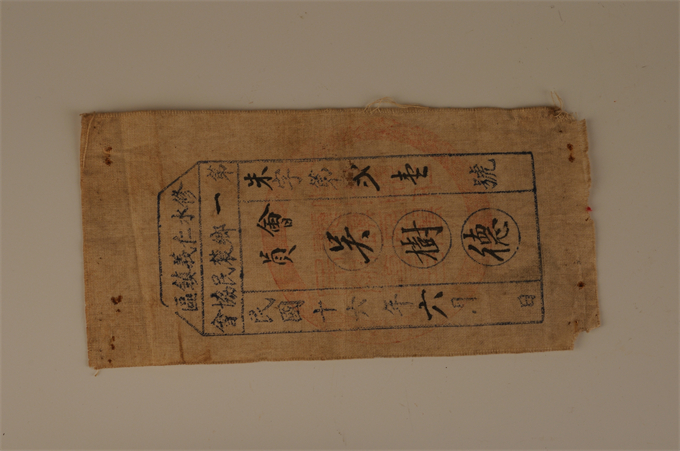 修水仁義鎮區
第一鄉農民協會
朱字第弍壹號
會員
吳樹德
民國十六年六月 日